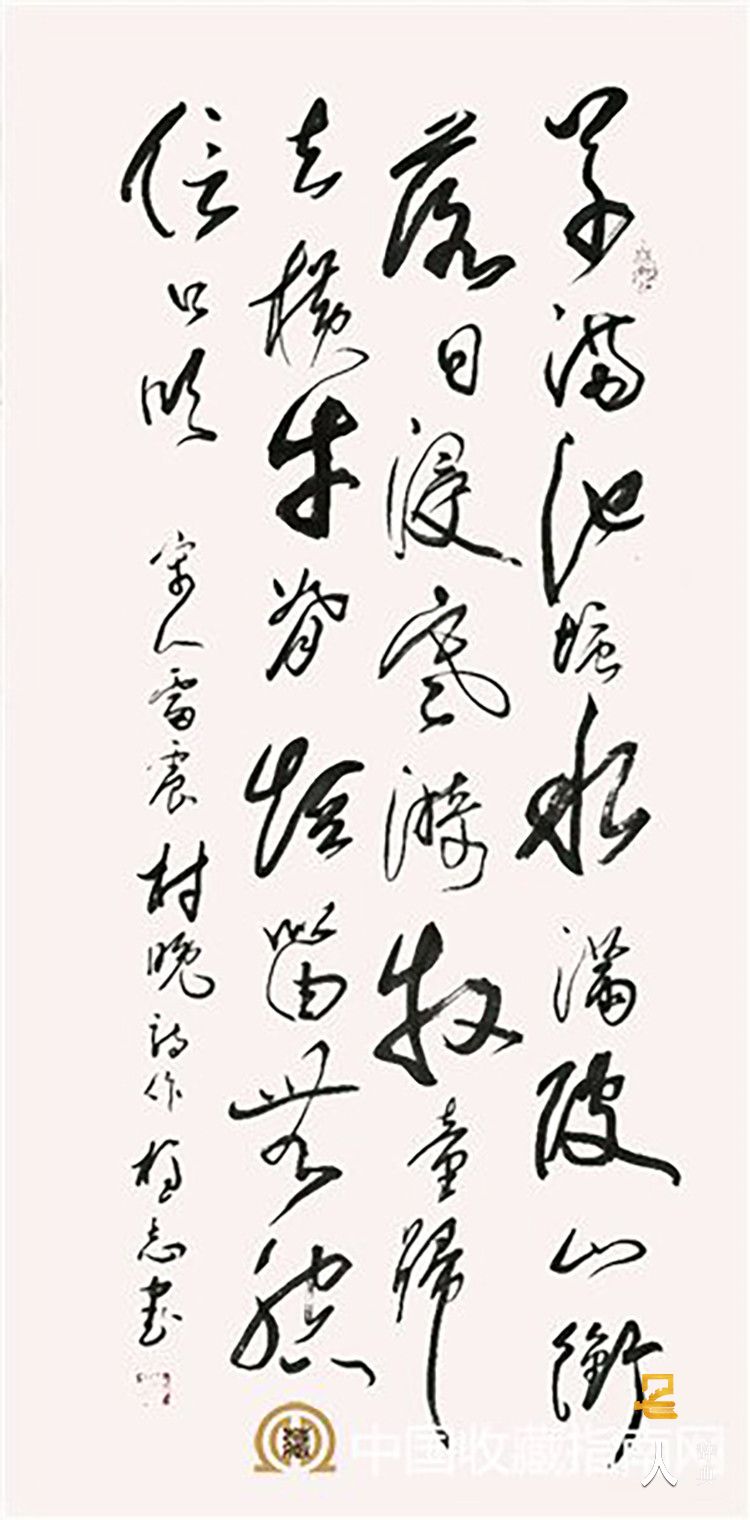 草滿池塘水滿陂山銜
落日浸寒漪牧童歸
去橫牛背短笛無腔
信口吹 宋人雷震村晚詩作 志書
中国收藏指南网